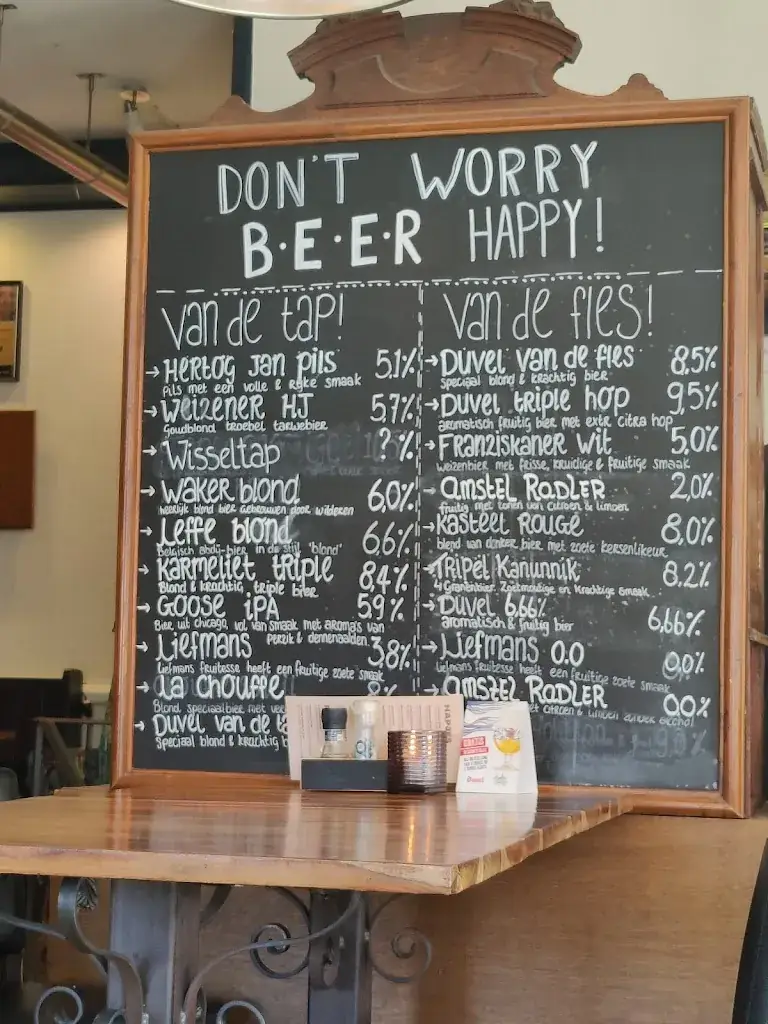 DON'T WORRY
B·E·E·R HAPPY!
van de tap!
→ HERTOG Jan pils 5.1%
pils met een volle & rijke smaak
→ Weizener HJ 5.7%
Goudblond troebel tarwebier
→ Wisseltap ? %
→ Waker blond 6,0%
heerlijk blond bier gebrouwen door wilderen
→ Leffe blond 6,6%
Belgisch abdij-bier in de stijl 'blond'
→ Karmeliet triple 8,4%
Blond & krachtig triple bier
→ GOOSE iPA 5,9%
Bier uit chicago, vol van smaak met aroma's van
perzik & dennenaalden
→ Liefmans 3,8%
Liefmans fruitesse heeft een fruitige zoete smaak
→ La chouffe 8%
Blond speciaalbier met
→ Duvel van de
Speciaal blond & krachtig
van de fles!
→ Duvel van de fles 8,5%
speciaal blond & krachtig bier
→ Duvel triple hop 9,5%
aromatisch fruitig bier met extr citra hop
→ Franziskaner Wit 5,0%
weizenbier met frisse, kruidige & fruitige smaak
→ amstel RadLER 2,0%
fruitig met tonen van citroen & limoen
→ Kasteel Rouge 8,0%
blend van donker bier met zoete kersenlikeur
→ Tripel Kanunnik 8.2%
4 Granenbier. Zoetmoutige en krachtige smaak
→ Duvel 6,66% 6,66%
aromatisch & fruitig bier
→ Liefmans 0.0 0,0%
Liefmans fruitesse heeft een fruitige zoete smaak
→ amstel RadLER 0,0%
met citroen & limoen zonder alcohol
HAPJES